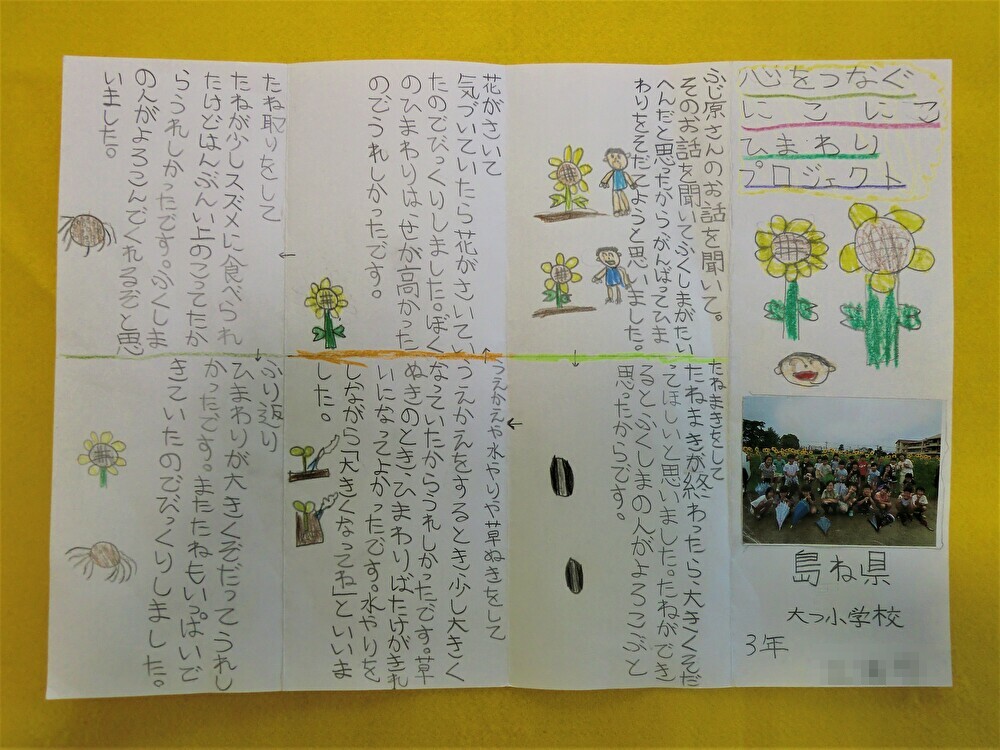 心をつなぐ
にこにこ
ひまわり
プロジェクト
島ね県
大つ小学校
3年
ふじ原さんのお話を聞いて。
そのお話を聞いてふくしまがたい
へんだと思ったからがんばってひま
わりをそだてようと思いました。
たねまきをして
たねまきが終わったら、大きくそだ
ってほしいと思いました。たねができ
るとふくしまの人がよろこぶと
思ったからです。
うえかえや水やりや草ぬきをして
うえかえをするとき少し大きく
なっていたからうれしかったです。草
ぬきのとき、ひまわりばたけがきれ
いになってよかったです。水やりを
しながら「大きくなってね」といいま
した。
花がさいて
気づいていたら花がさいてい
たのでびっくりしました。ぼく
のひまわりは、せが高かった
のでうれしかったです。
たね取りをして
たねが少しスズメに食べられ
たけどはんぶんい上のこってたか
らうれしかったです。ふくしま
の人がよろこんでくれるぞと思
いました。
ふり返り
ひまわりが大きくそだってうれし
かったです。またたねもいっぱいで
きていたのでびっくりしました。